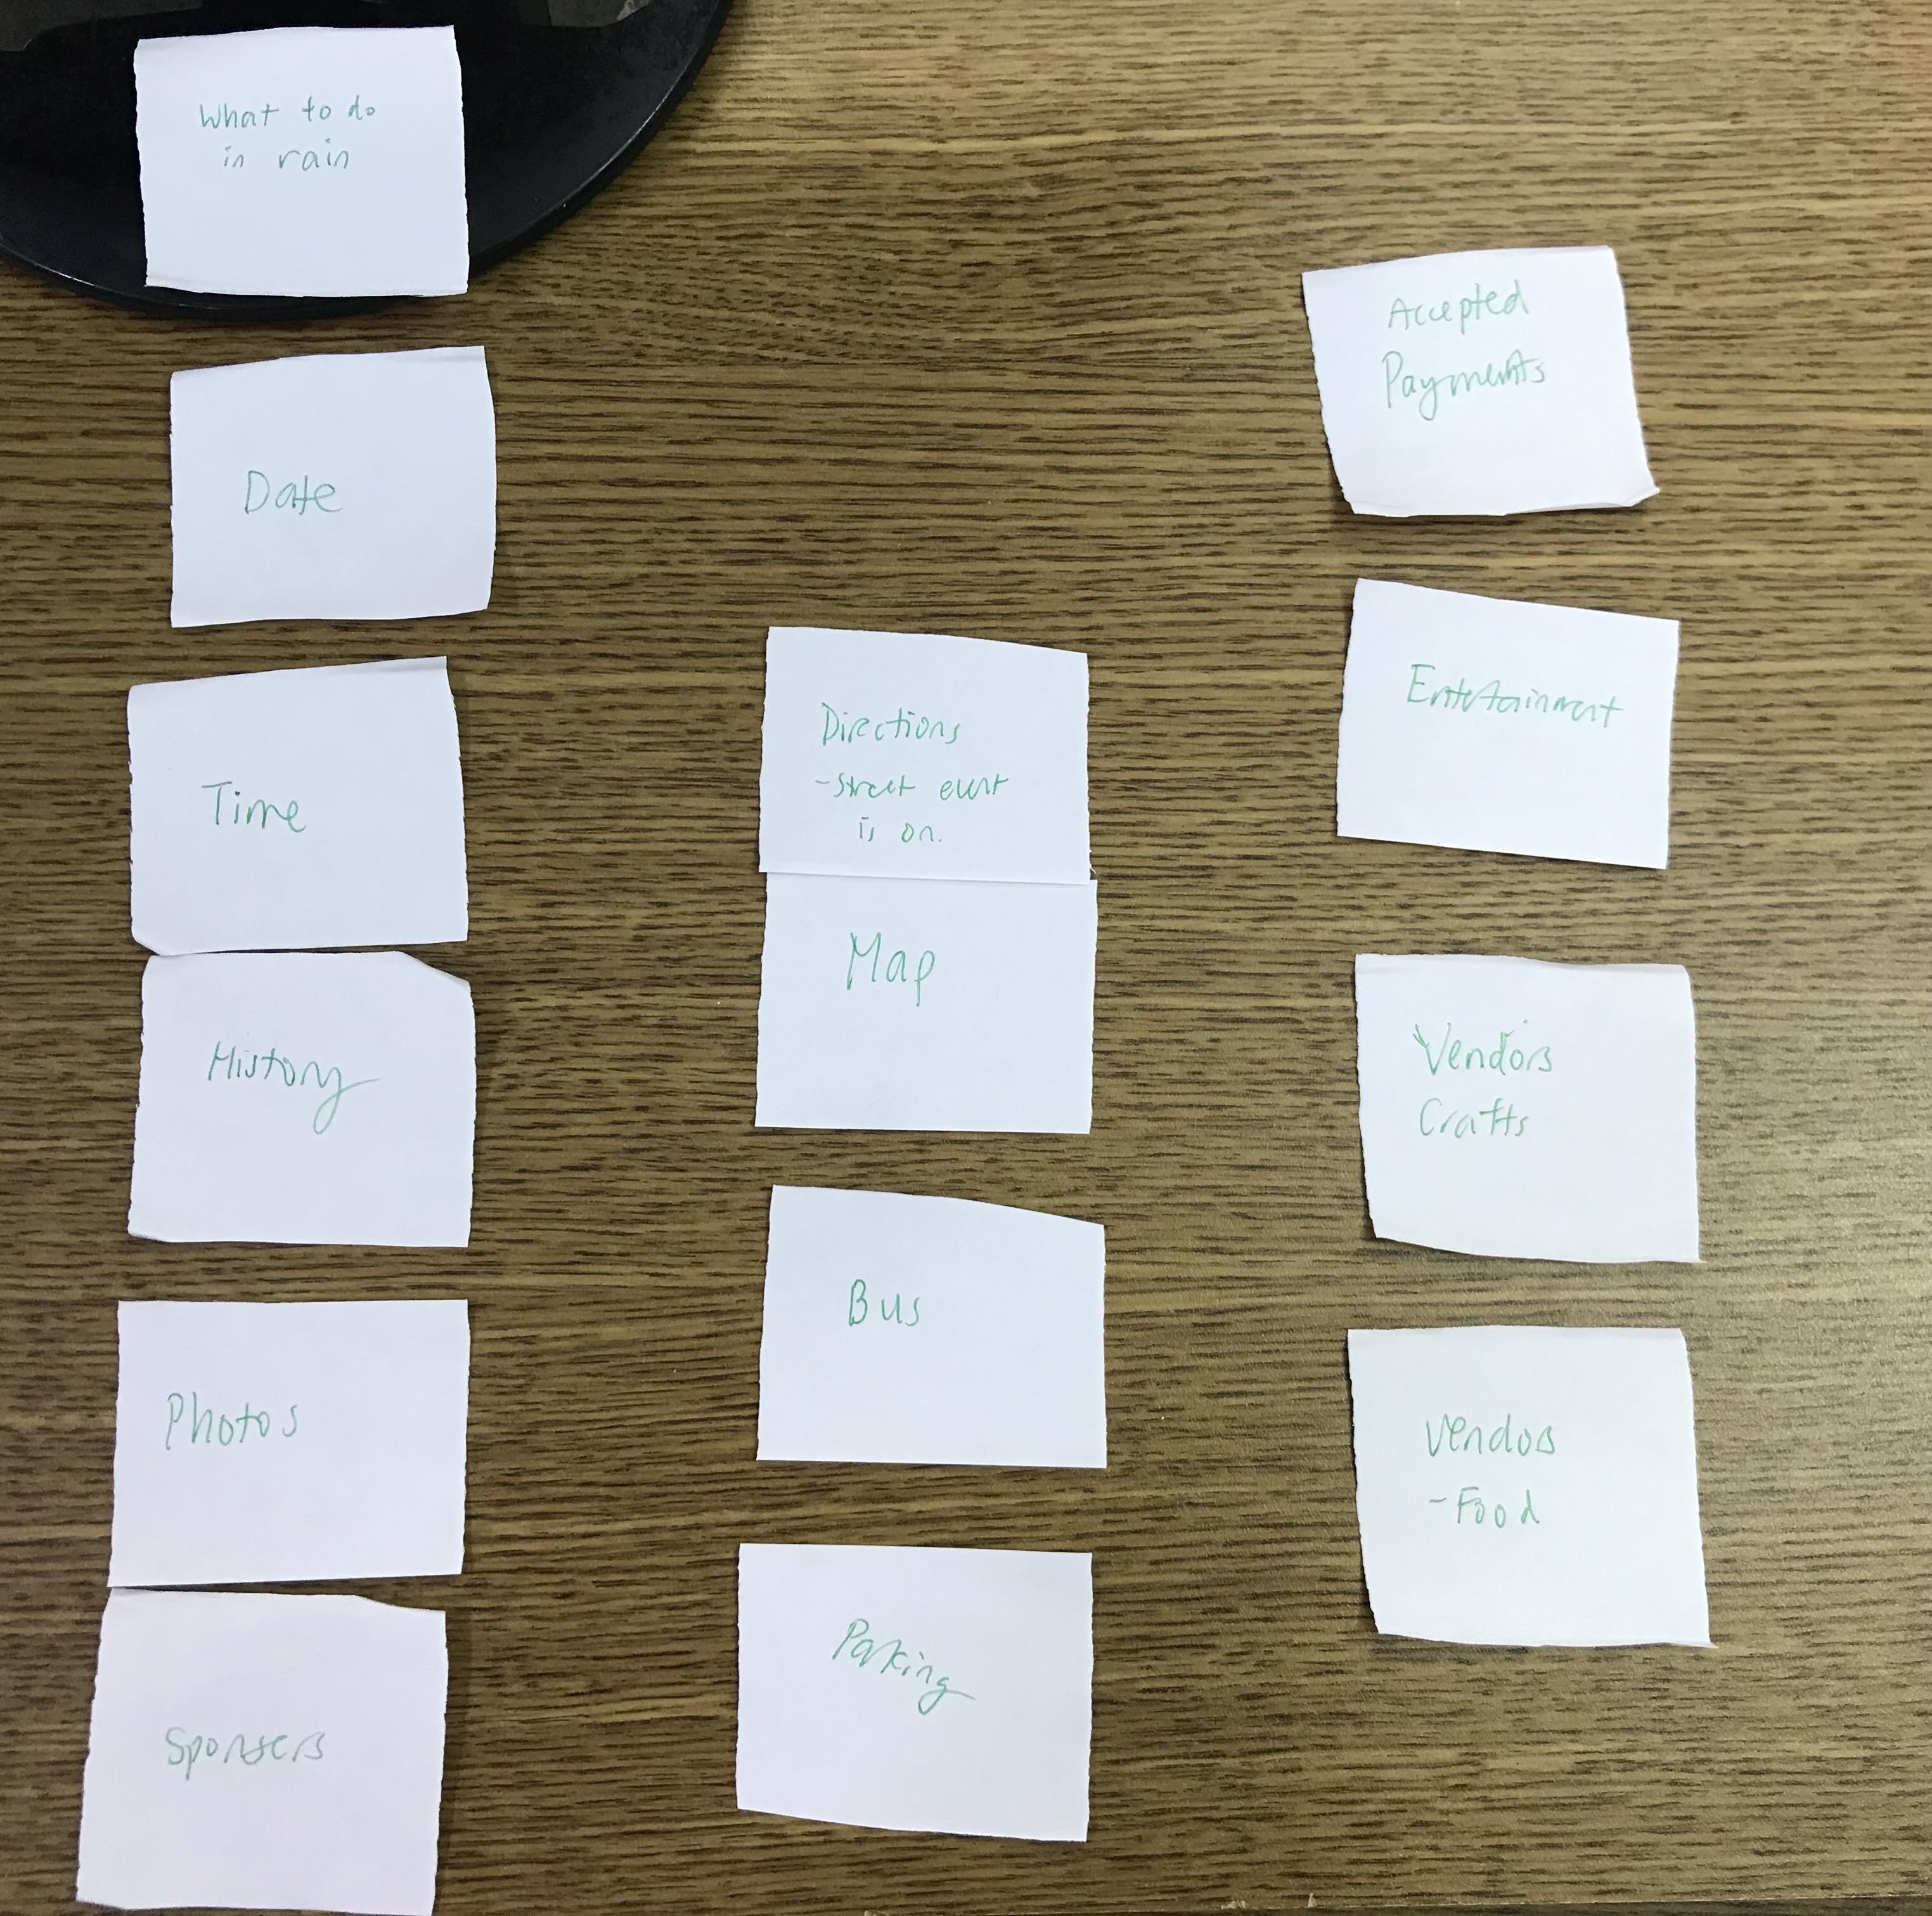 What to do
in rain
Date
Time
History
Photos
Sponsers
Directions
-Street event
is on.
Map
Bus
Parking
Accepted
Payments
Entertainment
Vendors
Crafts
Vendors
-Food